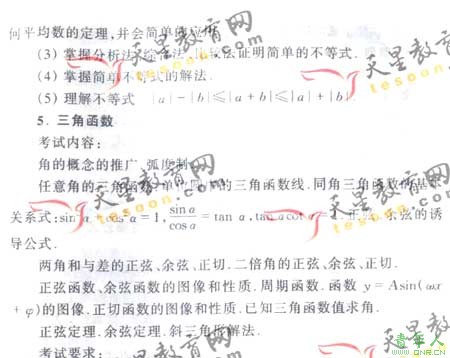 何平均数的定理,并会简单的应用.
(3) 掌握分析法、综合法、比较法证明简单的不等式.
(4) 掌握简单不等式的解法.
(5) 理解不等式 |a|-|b|≤|a+b|≤|a|+|b|.
5. 三角函数
考试内容:
角的概念的推广.弧度制.
任意角的三角函数.单位圆中的三角函数线.同角三角函数的基本
关系式:sin²α+cos²α=1, sinα/cosα=tan α,tan αcot α=1.正弦、余弦的诱
导公式.
两角和与差的正弦、余弦、正切.二倍角的正弦、余弦、正切.
正弦函数、余弦函数的图像和性质.周期函数.函数 y=Asin(ωx
+φ)的图像.正切函数的图像和性质.已知三角函数值求角.
正弦定理.余弦定理.斜三角形解法.
考试要求:
天星教育网
tesoon.com
天星教育网
tesoon.com
天星教育网
tesoon.com
天星教育网
青年人
www.QNR.CN